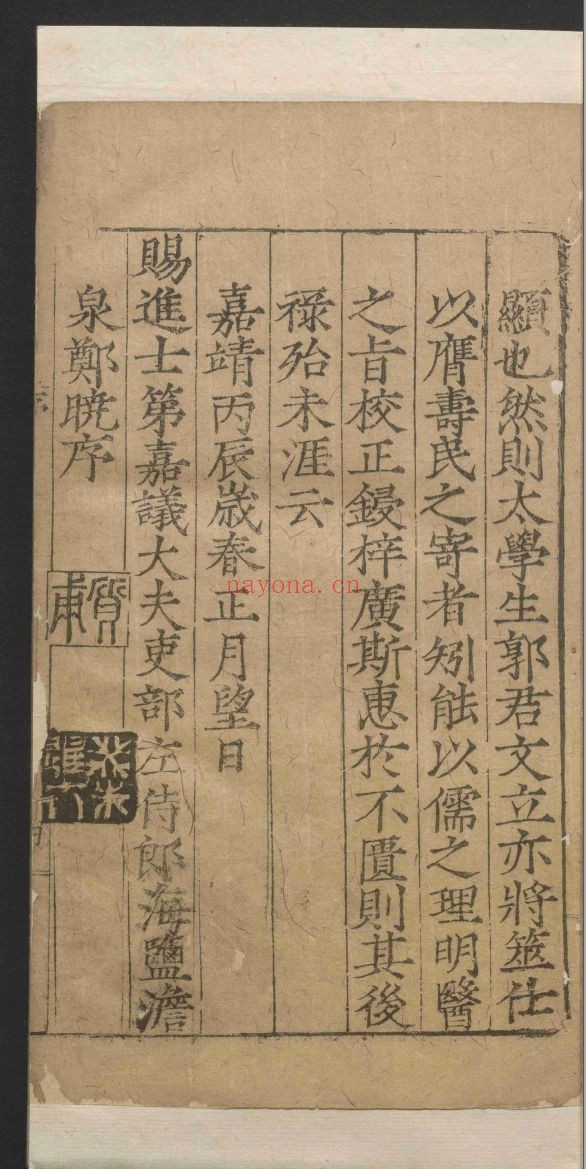 顯也然則太學生郭君文立亦將筮仕
以膺壽民之寄者矧能以儒之理明醫
之旨校正鋟梓廣斯惠於不匱則其後
祿殆未涯云
嘉靖丙辰嵗春正月望日
賜進士第嘉議大夫吏部左侍郎海鹽澹
泉鄭曉序
nayona.cn